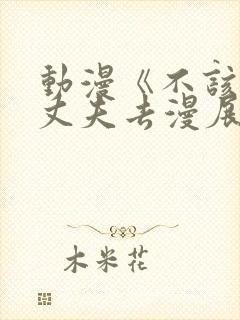 動漫《不該
丈夫去漫展
木米花